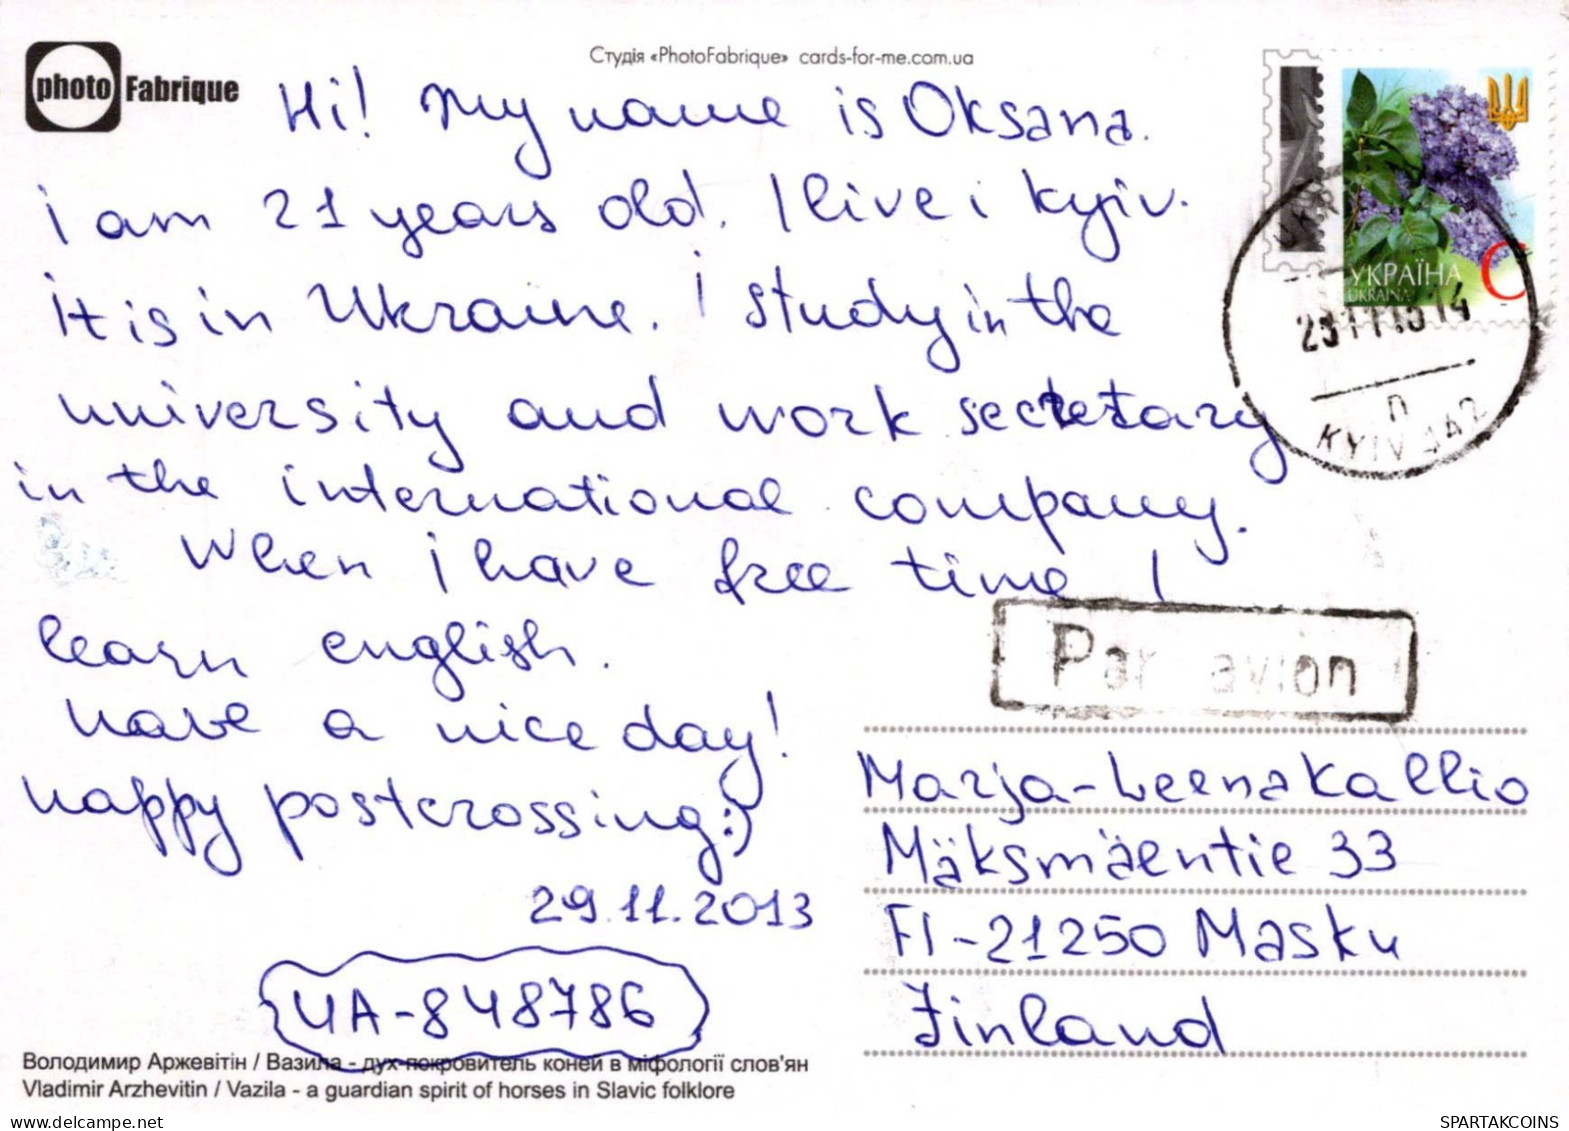 Студія «PhotoFabrique» cards-for-me.com.ua
photo Fabrique
Hi! My name is Oksana.
i am 21 years old. I live i Kyiv.
it is in Ukraine. i study in the
university and work secretary
in the international company.
When i have free time I
learn english.
have a nice day!
happy postcrossing:)
29.11.2013
UA-848786
Володимир Аржевітін / Вазила - дух-покровитель коней в міфології слов'ян
Vladimir Arzhevitin / Vazila - a guardian spirit of horses in Slavic folklore
УКРАЇНА
UKRAINA
C
KYIV
Par avion
Marja-Leena Kallio
Mäksmäentie 33
FI-21250 Masku
Finland
www.delcampe.net
SPARTAKCOINS